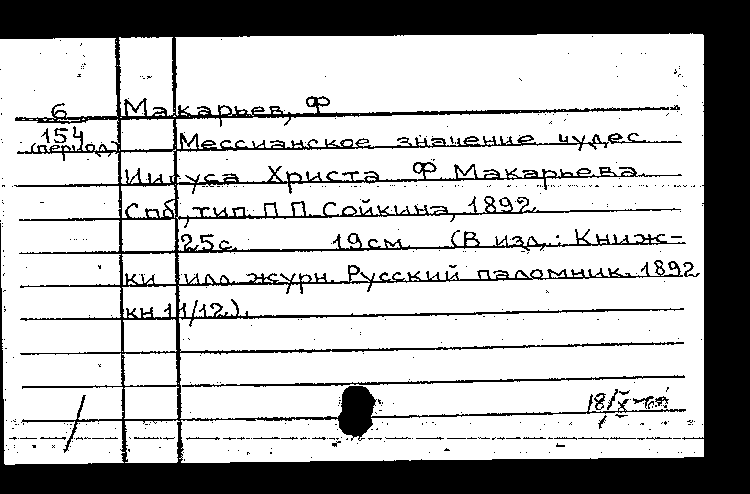 6 Макарьев, Ф
154 Мессианское значение чудес
(период.)
Иисуса Христа Ф Макарьева
Спб, тип. П П. Сойкина, 1892.
25с. 19см (В изд.: Книж-
ки илл. журн. Русский паломник. 1892
кн 11/12.).
18/X